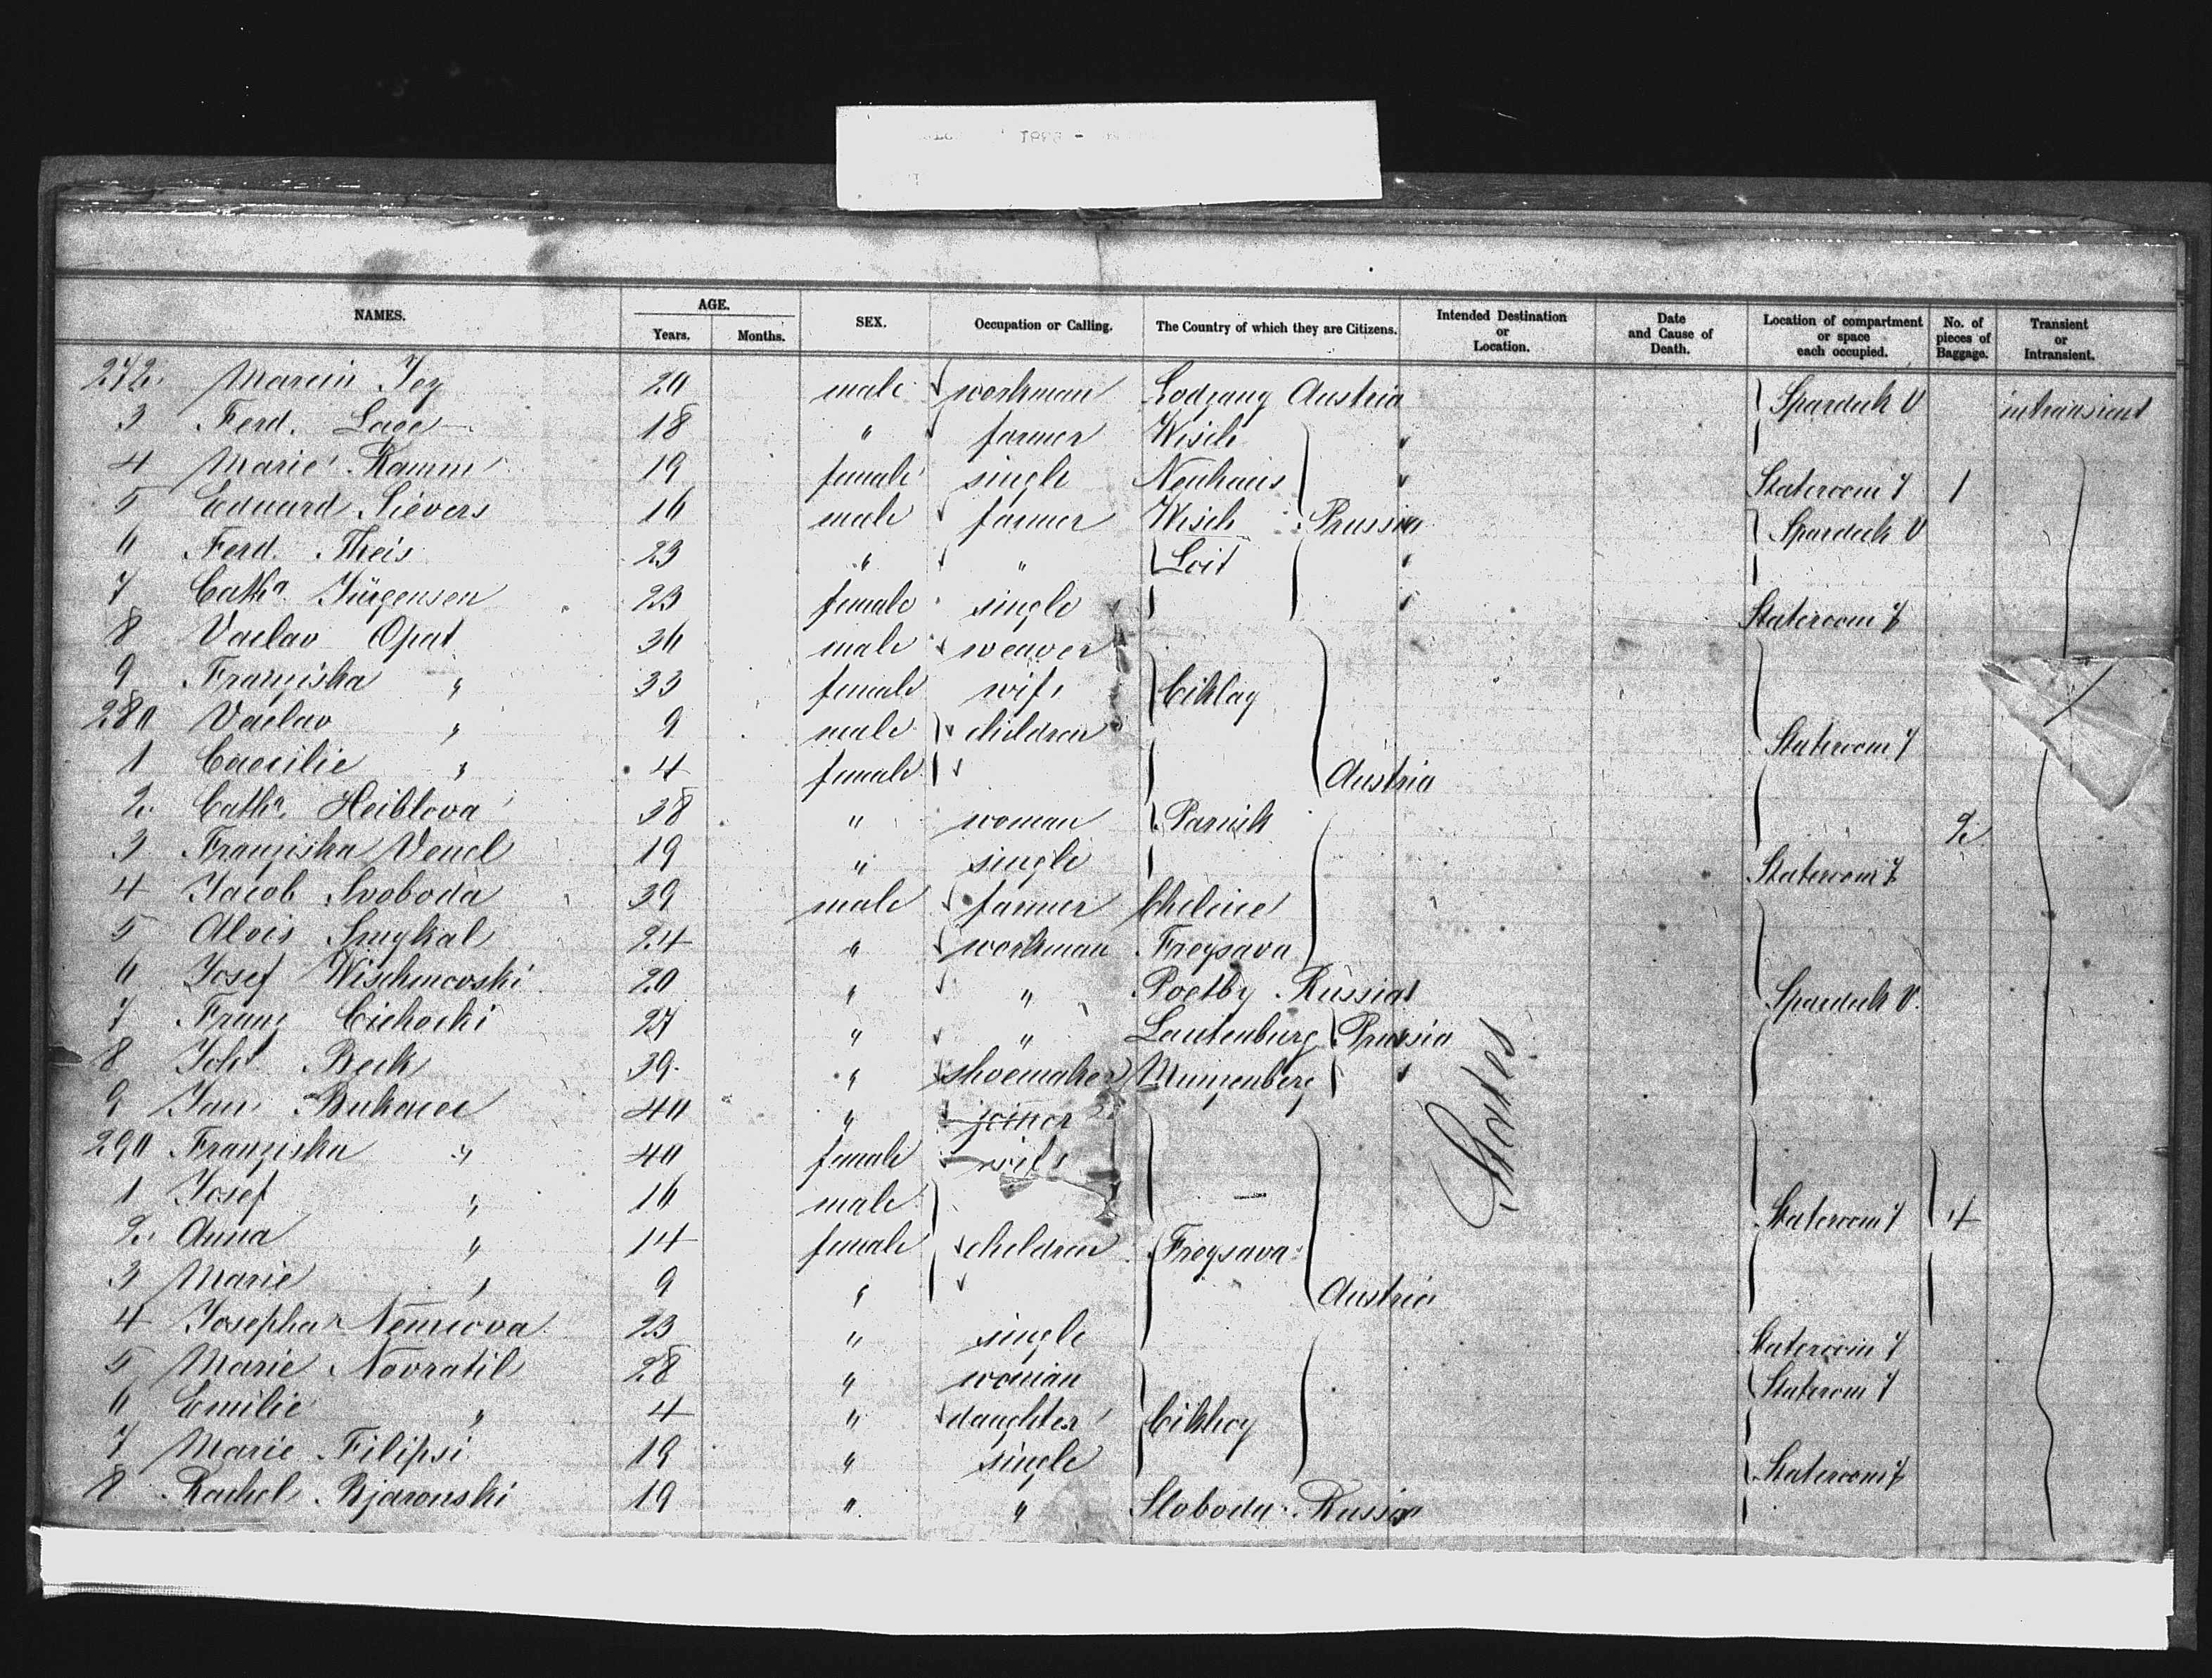 NAMES. AGE. Years. Months. SEX. Occupation or Calling. The Country of which they are Citizens. Intended Destination or Location. Date and Cause of Death. Location of compartment or space each occupied. No. of pieces of Baggage. Transient or Intransient.
272. Marcin 20 male workman Austria Spardeck V intransient
3 Ferd. Lage 18 " farmer Wisch
4 Marie Ramm 19 female single Neuhaus Stateroom 7 1
5 Eduard Sievers 16 male farmer Wisch Prussia Spardeck V
6 Ferd. Theis 23 " " Loit
7 Catha. Jürgensen 23 female single Stateroom 7
8 Vaclav Opat 36 male weaver
9 Franziska " 33 female wife Cihlay
280 Vaclav " 9 male children Stateroom 7
1 Caecilie " 4 female Austria
2. Catha. Heiblova 38 " woman Parisek 2
3 Franziska Vencl 19 " single Stateroom 7
4 Jacob Svoboda 39 male farmer
5 Alois Smykal 24 " workman Freysava
6 Josef Wischnewski 20 " " Russia Spardeck V.
7 Franz Cichocki 27 " " Lautenburg Prussia
8 Joht. Beck 39. " shoemaker Munzenberg States
9 Jan Bukacec 40 " joiner
290 Franziska " 40 female wife
1 Josef " 16 male Stateroom 7 4
2. Anna " 14 female children Freysava
3 Marie " 9 " Austria
4 Josepha Nemcova 23 " single Stateroom 7
5 Marie Novratil 28 " woman Stateroom 7
6 Emilie " 4 " daughter
7 Marie Filipsi 19 " single Stateroom 7
8 Rachel Bjaronski 19 " " Sloboda Russia